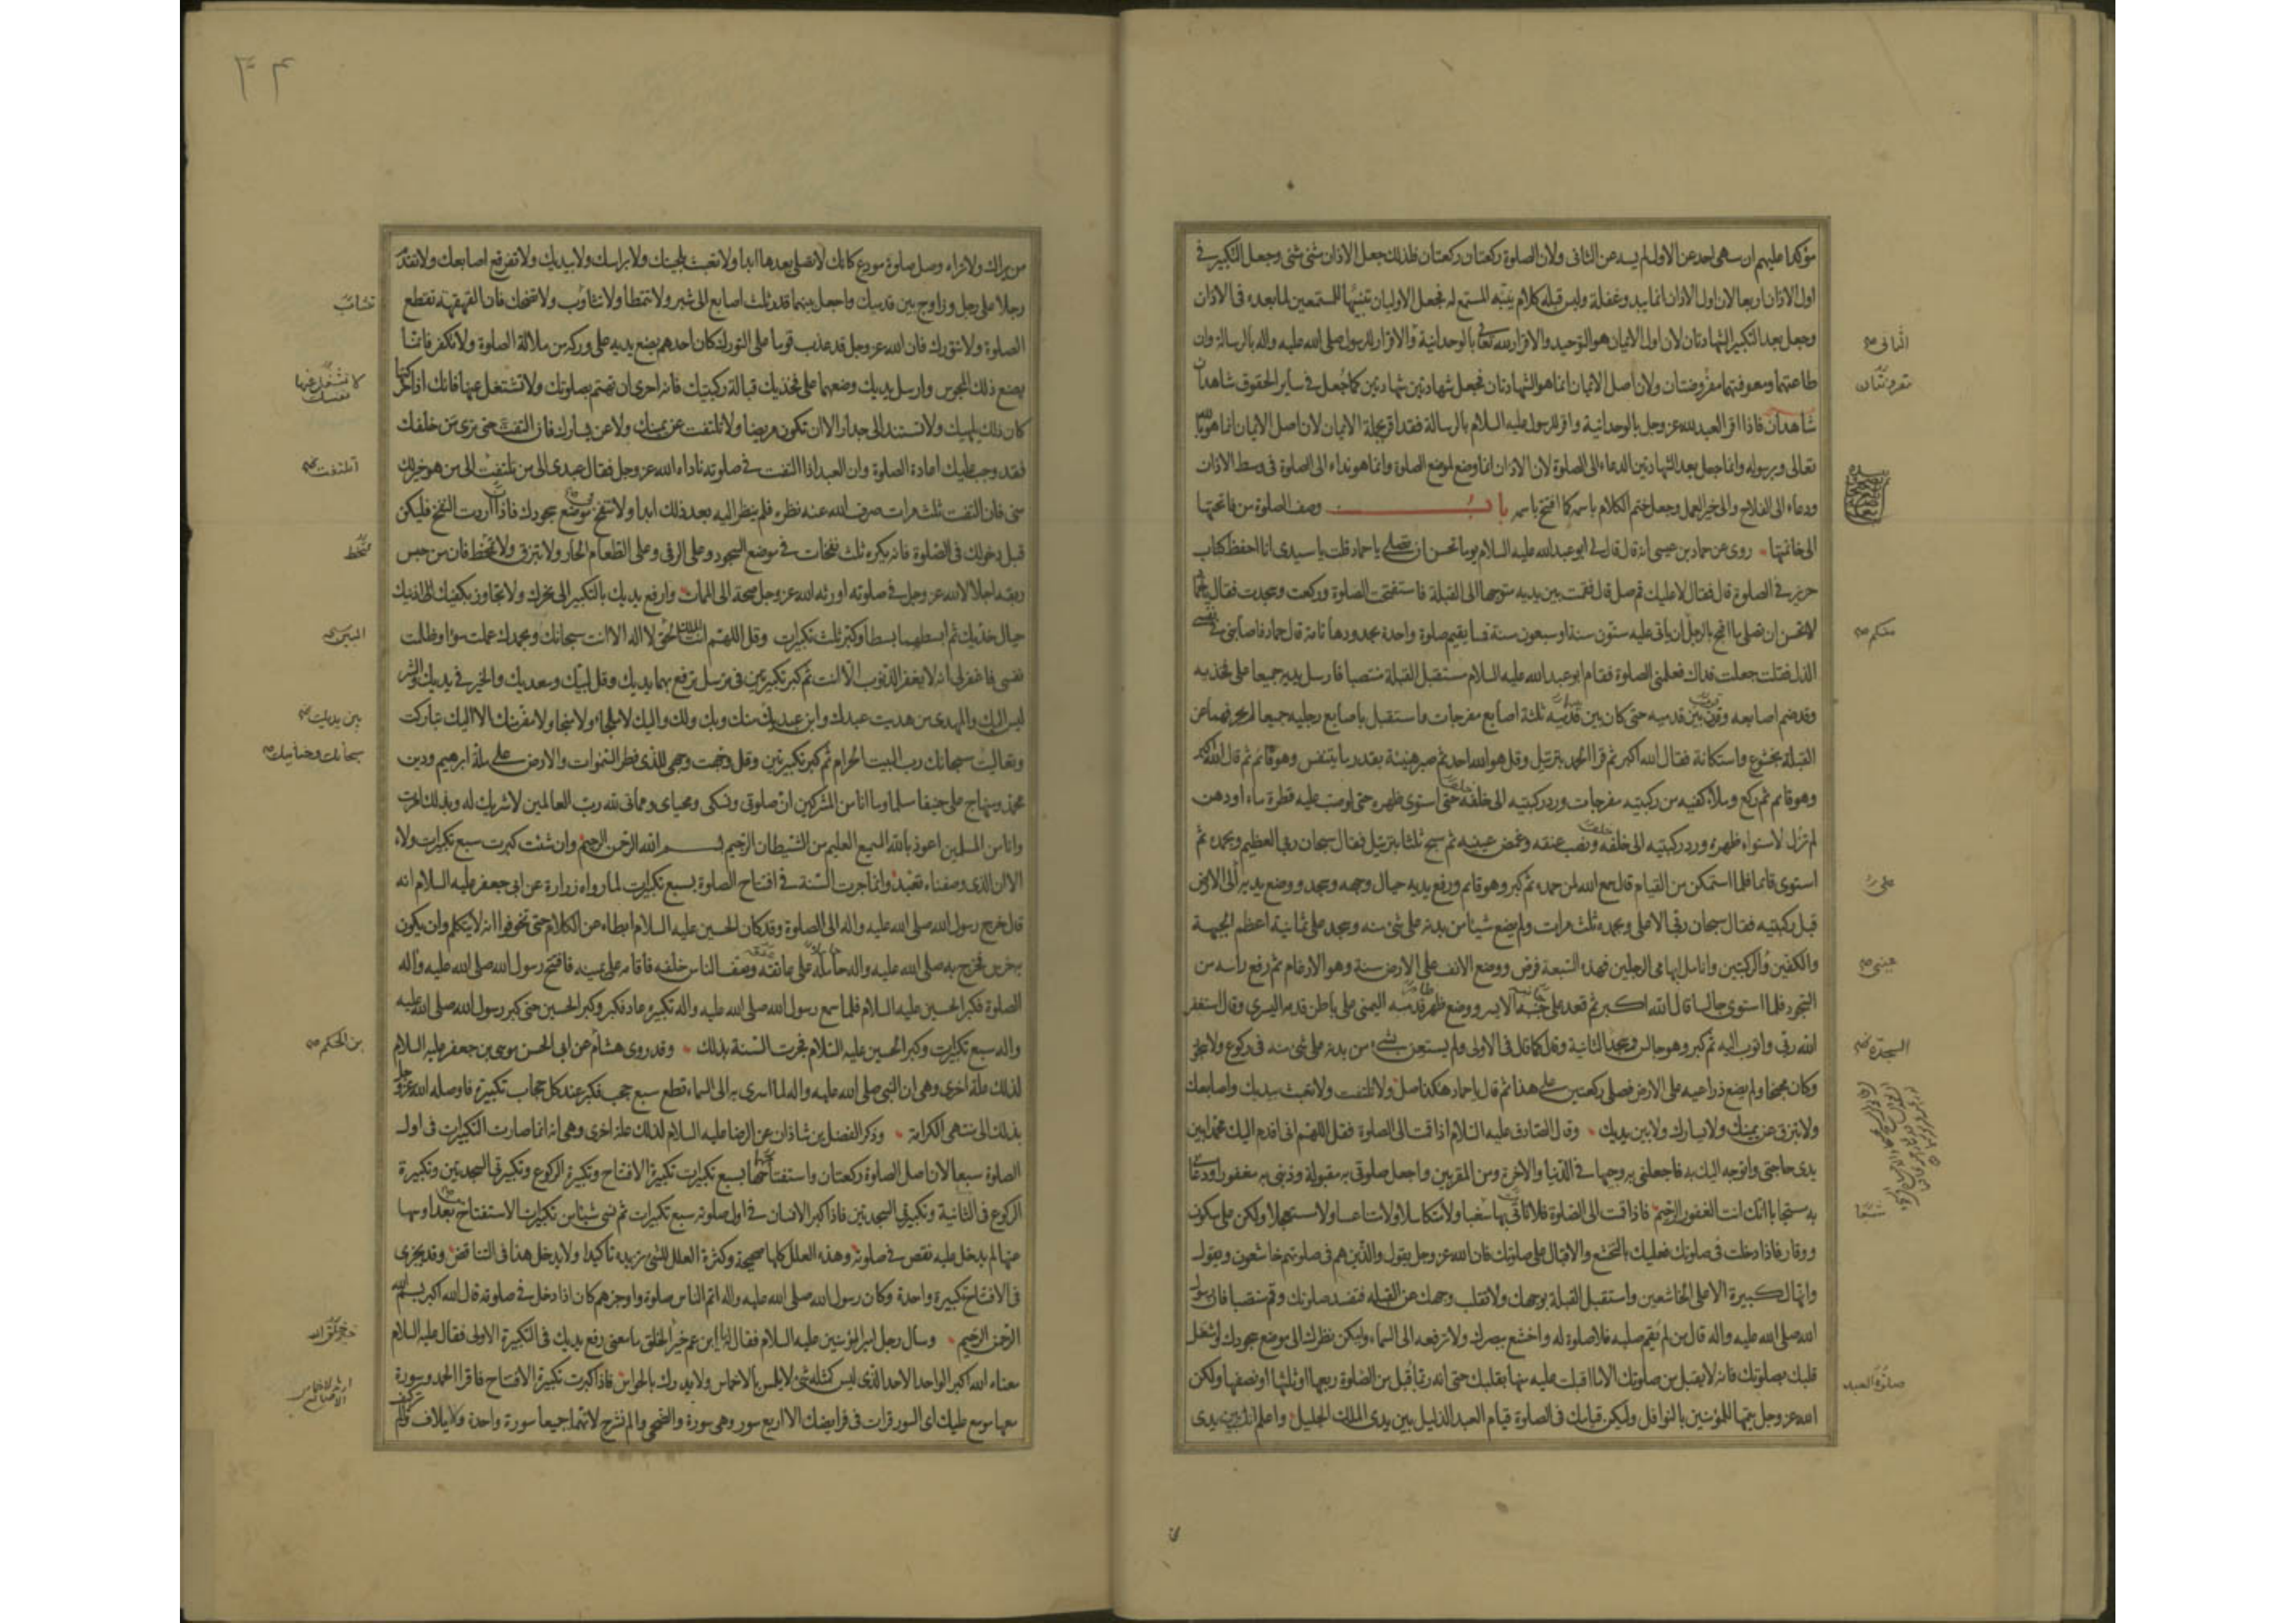 مؤكدا عليهم ان سهى احد عن الاول لم يسه عن الثانى ولان الصلوة ركعتان ركعتان فلذلك جعل الاذان مثنى مثنى وجعل التكبير فى
اول الاذان اربعا لان اول الاذان انما يبدو غفلة وليس قبله كلام ينبه المستمع له فجعل الاوليان تنبيها للمستمعين لما بعده فى الاذان
وجعل بعد التكبير الشهادتان لان اول الايمان هو التوحيد والاقرار لله تعالى بالوحدانية والاقرار للرسول صلى الله عليه واله بالرسالة وان
طاعتهما ومعرفتهما مقرونتان ولان اصل الايمان انما هو الشهادتان فجعل شهادتين شهادتين كما جعل فى ساير الحقوق شاهدان
شاهدان فاذا اقر العبد لله عز وجل بالوحدانية واقر للرسول عليه السلام بالرسالة فقد اقر بجملة الايمان لان اصل الايمان انما هو بالله
تعالى وبرسوله وانما جعل بعد الشهادتين الدعاء الى الصلوة لان الاذان انما وضع لموضع الصلوة وانما هو نداء الى الصلوة فى وسط الاذان
ودعاء الى الفلاح والى خير العمل وجعل ختم الكلام باسمه كما افتتح باسمه باب وصف الصلوة من فاتحتها
الى خاتمتها روى عن حماد بن عيسى انه قال قال لى ابو عبد الله عليه السلام يوما تحسن ان تصلى يا حماد قلت يا سيدى انا احفظ كتاب
حريز فى الصلوة قال فقال لا عليك قم صل قال فقمت بين يديه متوجها الى القبلة فاستفتحت الصلوة وركعت وسجدت فقال يا حماد
لا تحسن ان تصلى ما اقبح بالرجل ان ياتى عليه ستون سنة او سبعون سنة فما يقيم صلوة واحدة بحدودها تامة قال حماد فاصابنى فى نفسى
الذل فقلت جعلت فداك فعلمنى الصلوة فقام ابو عبد الله عليه السلام مستقبل القبلة منتصبا فارسل يديه جميعا على فخذيه
وقد ضم اصابعه وقرن بين قدميه حتى كان بين قدميه ثلثة اصابع مفرجات واستقبل باصابع رجليه جميعا لم يحرفهما عن
القبلة بخشوع واستكانة فقال الله اكبر ثم قرا الحمد بترتيل وقل هو الله احد ثم صبر هنيئة بقدر ما يتنفس وهو قائم ثم قال الله اكبر
وهو قائم ثم ركع وملأ كفيه من ركبتيه مفرجات ورد ركبتيه الى خلفه حتى استوى ظهره حتى لو صبت عليه قطرة ماء او دهن
لم تزل لاستواء ظهره ورد ركبتيه الى خلفه ونصب عنقه وغمض عينيه ثم سبح ثلثا بترتيل فقال سبحان ربى العظيم وبحمده ثم
استوى قائما فلما استمكن من القيام قال سمع الله لمن حمده ثم كبر وهو قائم ورفع يديه حيال وجهه وسجد ووضع يديه الى الارض
قبل ركبتيه فقال سبحان ربى الاعلى وبحمده ثلث مرات ولم يضع شيئا من بدنه على شئ منه وسجد على ثمانية اعظم الجبهة
والكفين والركبتين وانامل ابهامى الرجلين فهذه السبعة فرض ووضع الانف على الارض سنة وهو الارغام ثم رفع راسه من
السجود فلما استوى جالسا قال الله اكبر ثم قعد على جنبه الايسر ووضع ظهر قدمه اليمنى على باطن قدمه اليسرى وقال استغفر
الله ربى واتوب اليه ثم كبر وهو جالس وسجد الثانية وقال كما قال فى الاولى ولم يستعن بشئ من بدنه على شئ منه فى ركوع ولا سجود
وكان مجنحا ولم يضع ذراعيه على الارض فصلى ركعتين على هذا ثم قال يا حماد هكذا صل ولا تلتفت ولا تعبث بيديك واصابعك
ولا تبزق عن يمينك ولا يسارك ولا بين يديك وقال الصادق عليه السلام اذا قمت الى الصلوة فقل اللهم انى اقدم اليك محمدا بين
يدى حاجتى واتوجه اليك به فاجعلنى به وجيها فى الدنيا والاخرة ومن المقربين واجعل صلوتى به مقبولة وذنبى به مغفورا ودعائى
به مستجابا انك انت الغفور الرحيم فاذا قمت الى الصلوة فلا تاتى بها شبعا ولا متكاسلا ولا متناعسا ولا مستعجلا ولكن على سكون
ووقار فاذا دخلت فى صلوتك فعليك بالتخشع والاقبال على صلوتك فان الله عز وجل يقول والذين هم فى صلوتهم خاشعون ويقول
وانها لكبيرة الا على الخاشعين واستقبل القبلة بوجهك ولا تقلب وجهك عن القبلة فتفسد صلوتك وقم منتصبا فان رسول
الله صلى الله عليه واله قال من لم يقم صلبه فلا صلوة له واخشع ببصرك ولا ترفعه الى السماء وليكن نظرك الى موضع سجودك واشغل
قلبك بصلوتك فانه لا يقبل من صلوتك الا ما اقبلت عليه منها بقلبك حتى انه ربما قبل من الصلوة ربعها او ثلثها او نصفها ولكن
الله عز وجل يتمها للمؤمنين بالنوافل وليكن قيامك فى الصلوة قيام العبد الذليل بين يدى الملك الجليل واعلم انك بين يدى
الثانى
مقرونتان
متكم
على
عينى
السجدة
شبعا
صلوة العبد
من يراك ولا تراه وصل صلوة مودع كانك لا تصلى بعدها ابدا ولا تعبث بلحيتك ولا براسك ولا بيديك ولا تفرقع اصابعك ولا تقدم
رجلا على رجل وزاوج بين قدميك واجعل بينهما قدر ثلث اصابع الى شبر ولا تتمطا ولا تثاؤب ولا تضحك فان القهقهة تقطع
الصلوة ولا تتورك فان الله عز وجل قد عذب قوما على التورك كان احدهم يضع يديه على وركيه من ملالة الصلوة ولا تكفر فانما
يصنع ذلك المجوس وارسل يديك وضعهما على فخذيك قبالة ركبتيك فانه احرى ان تهتم بصلوتك ولا تشتغل عنها فانك اذا حركتها
كان ذلك يلهيك ولا تستند الى جدار الا ان تكون مريضا ولا تلتفت عن يمينك ولا عن يسارك فان التفت حتى ترى من خلفك
فقد وجب عليك اعادة الصلوة وان العبد اذا التفت فى صلوته ناداه الله عز وجل فقال عبدى الى من تلتفت الى من هو خير لك
منى فان التفت ثلث مرات صرف الله عنه نظره فلم ينظر اليه بعد ذلك ابدا ولا تنفخ موضع سجودك فاذا اردت النفخ فليكن
قبل دخولك فى الصلوة فانه يكره ثلث نفخات فى موضع السجود وعلى الرقى وعلى الطعام الحار ولا تبزق ولا تمخط فان من حبس
ريقه اجلالا لله عز وجل فى صلوته اورثه الله عز وجل صحة الى الممات وارفع يديك بالتكبير الى نحرك ولا تجاوز بكفيك اذنيك
حيال خديك ثم ابسطهما بسطا وكبر ثلث تكبيرات وقل اللهم انت الملك الحق لا اله الا انت سبحانك وبحمدك عملت سوءا وظلمت
نفسى فاغفر لى انه لا يغفر الذنوب الا انت ثم كبر تكبيرتين فى ترسل ترفع بهما يديك وقل لبيك وسعديك والخير فى يديك والشر
ليس اليك والمهدى من هديت عبدك وابن عبديك منك وبك ولك واليك لا ملجاء ولا منجا ولا مفر منك الا اليك تباركت
وتعاليت سبحانك رب البيت الحرام ثم كبر تكبيرتين وقل وجهت وجهى للذى فطر السموات والارض على ملة ابرهيم ودين
محمد ومنهاج على حنيفا مسلما وما انا من المشركين ان صلوتى ونسكى ومحياى ومماتى لله رب العالمين لا شريك له وبذلك امرت
وانا من المسلمين اعوذ بالله السميع العليم من الشيطان الرجيم بسم الله الرحمن الرحيم وان شئت كبرت سبع تكبيرات ولاء
الا ان الذى وصفناه تعبد وانما جرت السنة فى افتتاح الصلوة بسبع تكبيرات لما رواه زرارة عن ابى جعفر عليه السلام انه
قال خرج رسول الله صلى الله عليه واله الى الصلوة وقد كان الحسين عليه السلام ابطاء عن الكلام حتى تخوفوا انه لا يتكلم وان يكون
به خرس فخرج به صلى الله عليه واله حامله على عاتقه وصف الناس خلفه فاقامه على يمينه فافتتح رسول الله صلى الله عليه واله
الصلوة فكبر الحسين عليه السلام فلما سمع رسول الله صلى الله عليه واله تكبيره عاد فكبر وكبر الحسين حتى كبر رسول الله صلى الله عليه
واله سبع تكبيرات وكبر الحسين عليه السلام فجرت السنة بذلك وقد روى هشام عن ابى الحسن موسى بن جعفر عليه السلام
لذلك علة اخرى وهى ان النبى صلى الله عليه واله لما اسرى به الى السماء قطع سبع حجب فكبر عند كل حجاب تكبيرة فاوصله الله عز وجل
بذلك الى منتهى الكرامة وذكر الفضل بن شاذان عن الرضا عليه السلام لذلك علة اخرى وهى انه انما صارت التكبيرات فى اول
الصلوة سبعا لان اصل الصلوة ركعتان واستفتاحها بسبع تكبيرات تكبيرة الافتتاح وتكبيرة الركوع وتكبيرتى السجدتين وتكبيرة
الركوع فى الثانية وتكبيرتى السجدتين فاذا كبر الانسان فى اول صلوته سبع تكبيرات ثم نسى شيئا من تكبيرات الاستفتاح بعد او سها
عنها لم يدخل عليه نقص فى صلوته وهذه العلل كلها صحيحة وكثرة العلل للشئ تزيده تاكيدا ولا يدخل هذا فى التناقض وقد يجزى
فى الافتتاح تكبيرة واحدة وكان رسول الله صلى الله عليه واله اتم الناس صلوة واوجزهم كان اذا دخل فى صلوته قال الله اكبر بسم الله
الرحمن الرحيم وسأل رجل امير المؤمنين عليه السلام فقال له يا ابن عم خير الخلق ما معنى رفع يديك فى التكبيرة الاولى فقال عليه السلام
معناه الله اكبر الواحد الاحد الذى ليس كمثله شئ لا يلمس بالاخماس ولا يدرك بالحواس فاذا كبرت تكبيرة الافتتاح فاقرا الحمد وسورة
معها موسع عليك اى السور قرات فى فرايضك الا اربع سور وهى سورة والضحى والم نشرح لانهما جميعا سورة واحدة ولايلاف والم
تركيف
تثائب
لا تشغل عنها نفسك
تمتخط
بين يديك
سبحانك وحنانيك
بن الحكم
٣٤